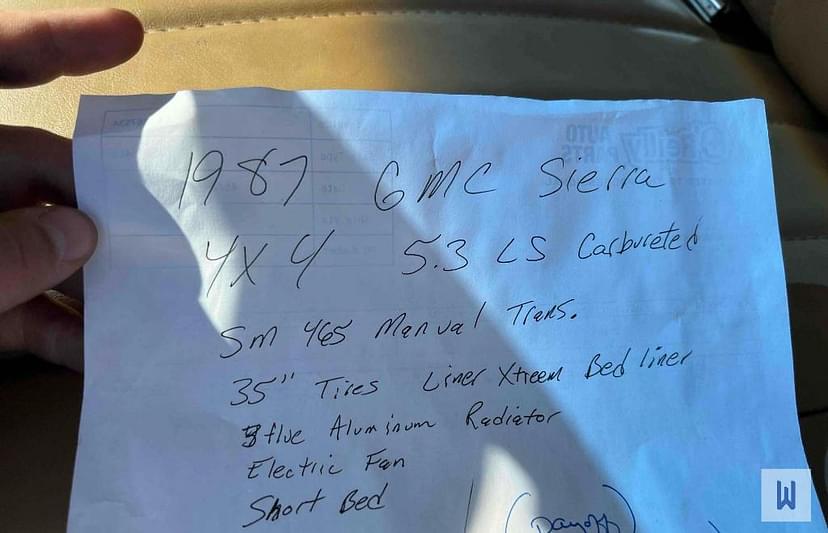 1987 GMC Sierra
4x4 5.3 LS Carbureted
Sm 465 Manual Trans.
35" Tires Liner Xtreem Bed liner
3 flue Aluminum Radiator
Electric Fan
Short Bed
(Payoff)
W